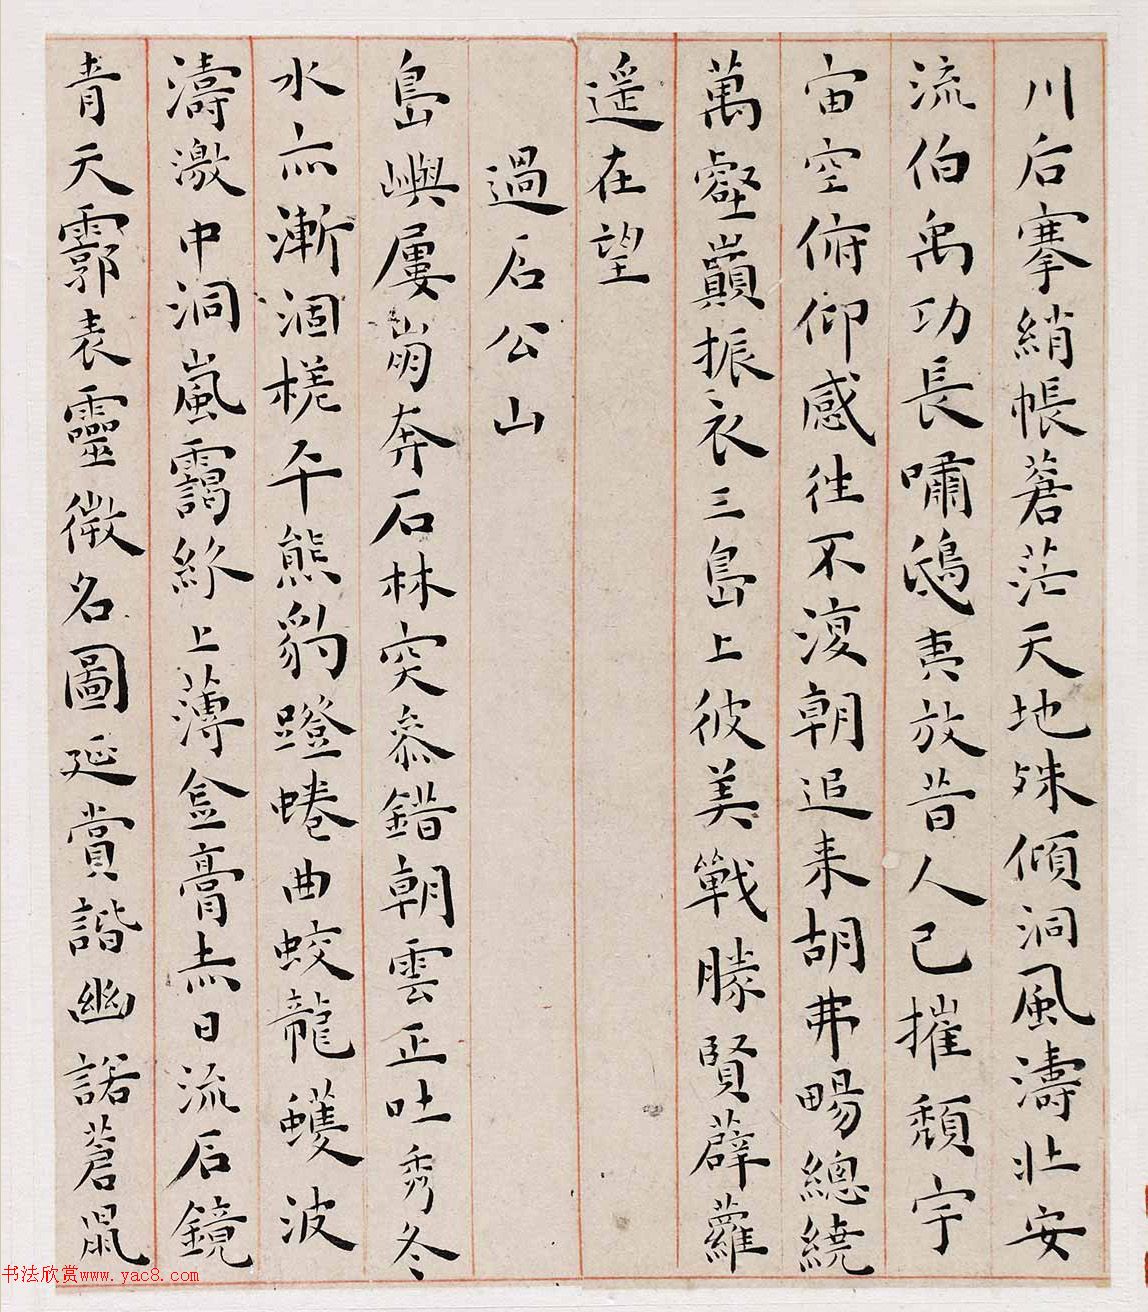 川后搴綃帳蒼茫天地殊傾洞風濤壯安
流伯禹功長嘯鴟夷放昔人已摧頹宇
宙空俯仰感往不復朝追来胡弗暢總繞
萬壑巔振衣三島上彼美戰勝賢薜蘿
遥在望
過石公山
島嶼屢崩奔石林突叅錯朝雲正吐秀冬
水亦漸涸槎牙熊豹蹬蜷曲蛟龍蠖波
濤激中洞嵐靄終上薄金膏赤日流石鏡
青天霩表靈徵名圖延賞諧幽諾蒼鼠
书法欣赏www.yac8.com